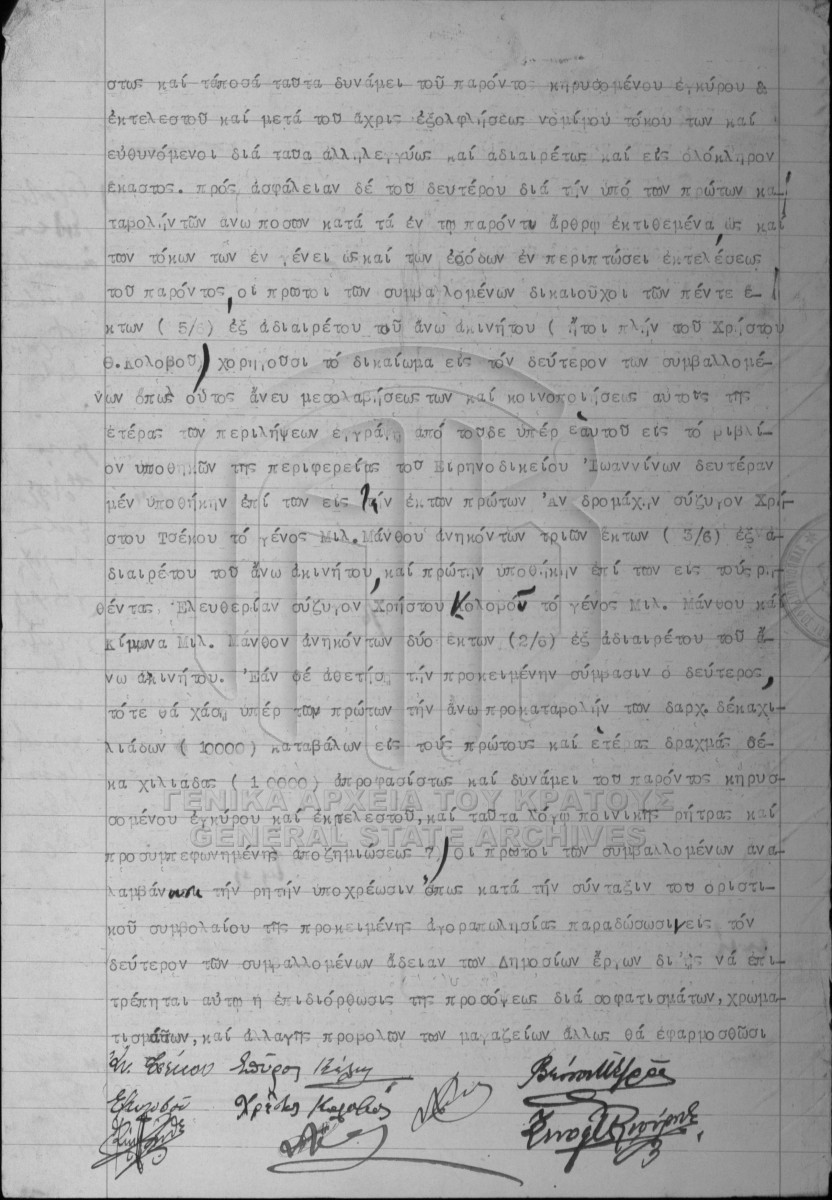 στως καί τάποσά ταῦτα δυνάμει τοῦ παρόντος κηρυσομένου ἐγκύρου &
ἐκτελεστοῦ καί μετά τοῦ ἄχρις ἐξολφλήσεως νομίμου τόκου των καί
εὐθυνόμενοι διά ταῦα ἀλληλεγγύως καί ἀδιαιρέτως καί εἰς ὁλόκληρον
ἕκαστος. πρός ἀσφάλειαν δέ τοῦ δευτέρου διά τήν ὑπό τῶν πρώτων κα-
ταβολήν τῶν ἄνω ποσῶν κατά τά ἐν τῳ παρόντι ἄρθρῳ ἐκτιθεμένα, ὡς καί
των τόκων των ἐν γένει ὡς καί των ἐξόδων ἐν περιπτώσει ἐκτελέσεως
τοῦ παρόντος, οἱ πρῶτοι τῶν συμβαλλομένων δικαιοῦχοι τῶν πέντε ἕ-
κτων ( 5/6) ἐξ ἀδιαιρέτου τοῦ ἄνω ἀκινήτου ( ἤτοι πλήν τοῦ Χρήστου
Θ. Κολοβοῦ) χορηγοῦσι τό δικαίωμα εἰς τόν δεύτερον των συμβαλλομέ-
νων ὅπως οὗτος ἄνευ μεσολαβήσεως των καί κοινοποιήσεως αὐτοῦς τῆς
ἑτέρας των περιλήψεων ἐγγράψῃ ἀπό τοῦδε ὑπέρ ἑαὐτοῦ εἰς τό βιβλί-
ον ὑποθηκῶν τῆς περιφερείας τοῦ Εἰρηνοδικείου Ἰωαννίνων δευτέραν
μέν ὑποθήκην ἐπί των εἰς τήν ἐκ των πρώτων Ἀν δρομάχην σύζυγον Χρή-
στου Τσέκου τό γένος Μιλ. Μάνθου ἀνηκόντων τριῶν ἕκτων ( 3/6) ἐξ ἀ-
διαιρέτου τοῦ ἄνω ἀκινήτου, καί πρώτην ὑποθήκην ἐπί των εἰς τούς ρη-
θέντας Ἐλευθερίαν σύζυγον Χρήστου Κολοβοῦ τό γένος Μιλ. Μάνθου καί
Κίμωνα Μιλ. Μάνθον ἀνηκόντων δύο ἕκτων (2/6) ἐξ ἀδιαιρέτου τοῦ ἄ-
νω ἀκινήτου. Ἐάν δέ ἀθετήσῃ τήν προκειμένην σύμβασιν ὁ δεύτερος,
τότε θά χάσῃ ὑπέρ των πρώτων τήν ἄνω προκαταβολήν των δαρχ. δέκαχι-
λιάδων ( 10000) καταβάλων εἰς τούς πρώτους καί ἑτέρας δραχμάς δέ-
κα χιλιάδας ( 10000) ἀπροφασίστως καί δυνάμει τοῦ παρόντος κηρυσ-
σομένου ἐγκύρου καί ἐκτελεστοῦ, καί ταῦτα λόγῳ ποινικῆς ρήτρας καί
προσυμπεφωνημένης ἀποζημιώσεως 7) οἱ πρῶτοι των συμβαλλομένων ἀνα-
λαμβάνουσι τήν ρητήν ὑποχρέωσιν ὅπως κατά τήν σύνταξιν τοῦ ὁριστι-
κοῦ συμβολαίου τῆς προκειμένης ἀγοραπωλησίας παραδώσωσιν εἰς τόν
δεύτερον τῶν συμβαλλομένων ἄδειαν των Δημοσίων ἔργων δι' ἧς νά ἐπι-
τρέπηται αὐτῳ ἡ ἐπιδιόρθωσις τῆς προσόψεως διά σοφατισμάτων, χρωμα-
τισμάτων, καί ἀλλαγῆς προβολῶν των μαγαζείων ἄλλως θά ἐφαρμοσθῶσι
ΓΕΝΙΚΑ ΑΡΧΕΙΑ ΤΟΥ ΚΡΑΤΟΥΣ
GENERAL STATE ARCHIVES
Ἀν. Τσέκου Σπῦρος
Χρῆστος Κολοβός